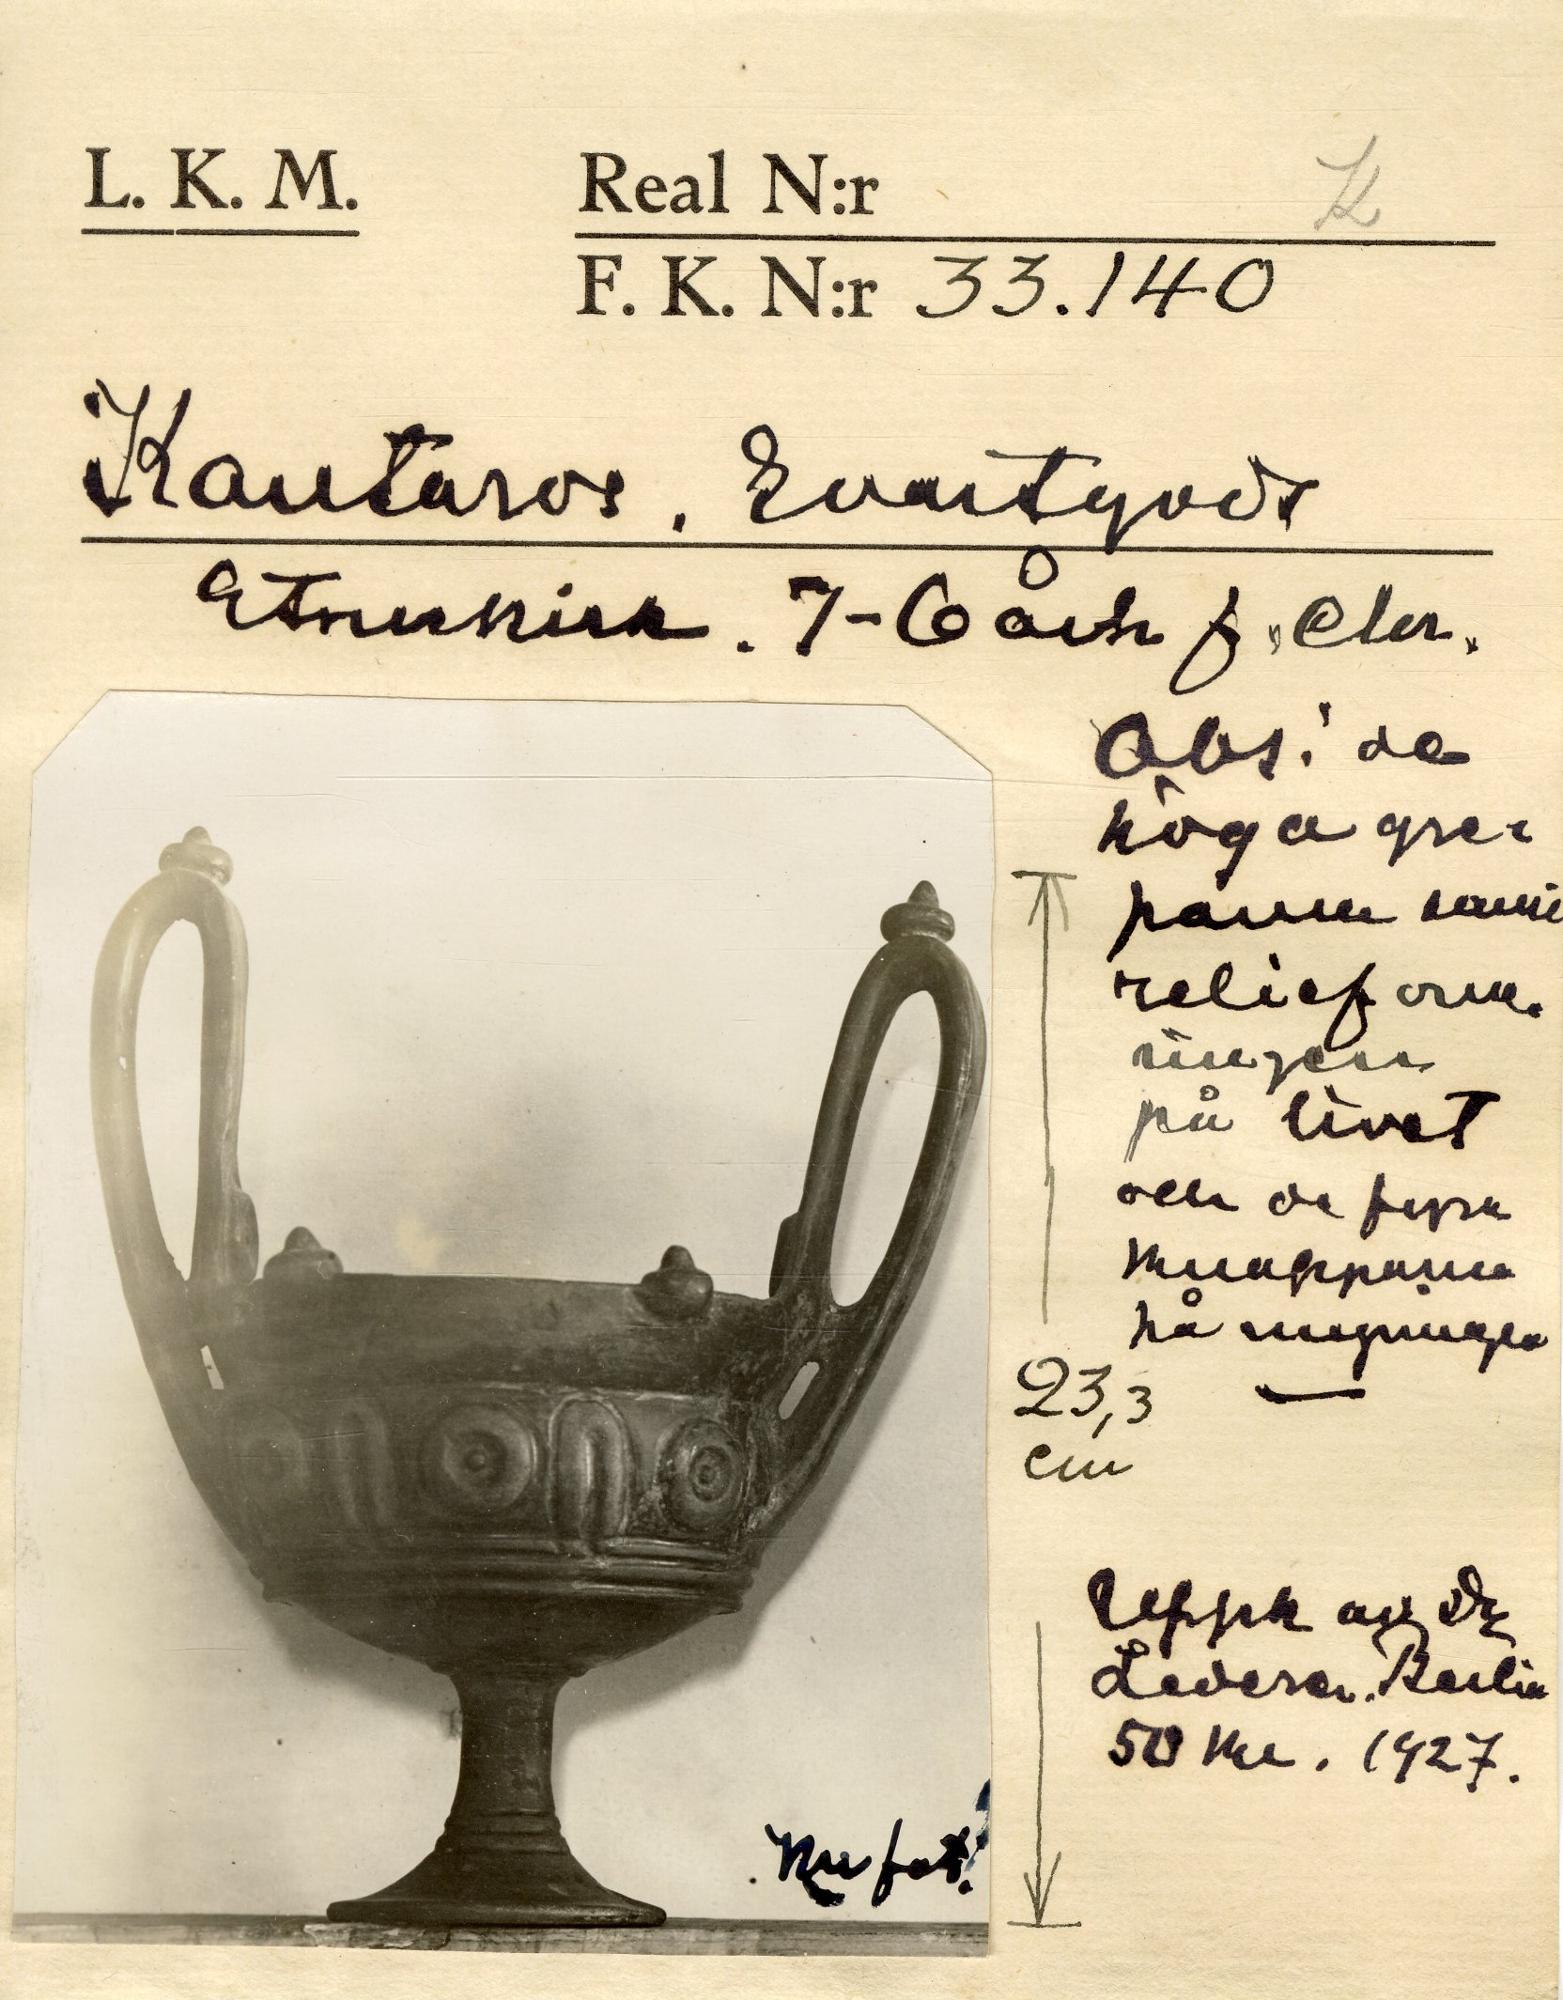 L. K. M.
Real N:r K
F. K. N:r 33.140
Kantaros. Svartgods
Etruskisk. 7-6 årh f. Chr.
Obs! de
höga gre-
parna samt
relieforne-
ringen
på livet
och de fyra
knapparna
på mynningen
23,3
cm
Uppk av Dr
Lederer. Berlin
50 Mk. 1927.